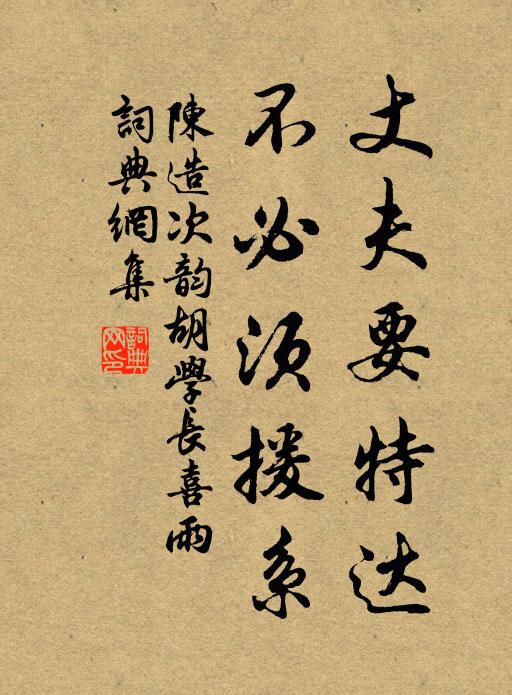 丈夫要特达
不必须援系
陳造次韵胡學長喜雨
詞典網集
詞典
网印